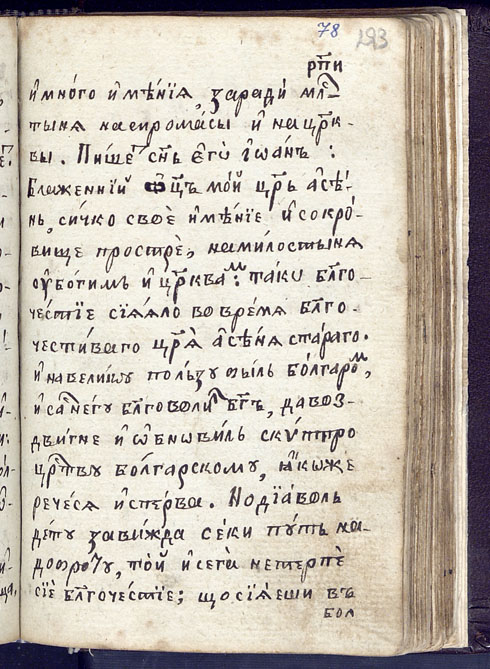 78 193
рп҃и
и҆мно́го и҆мѣ́нїѧ, зараді́ млⷭ҇
тынѧ насиромасы и҆ нацр҃к-
вы. Пише сн҃ъ є҆гѡ̀ і҆ѡа́нъ :
Блаженнїй ѿц҃ъ мо́й цр҃ь а҆сѣ́-
нь, сичко свое и҆мѣ́нїе и҆ сокро́-
вище прострѐ, намилостынѧ
ѹ҆богимъ и҆ цр҃кваⷨ: тако бл҃го-
че́стїе сїѧ́ло во вре́мѧ бл҃го-
чести́ваго цр҃ѧ̀ а҆сѣ́нѧ ста́раго.
и҆ навели́кѹ по́льзѹ бы́ль бо́лгароⷨ,
и҆ санегѹ бл҃говоли бг҃ъ, давоз-
двигне и҆ ѡ҆бнови́ль скѵ́птро
црⷭ҇твѹ бо́лгарскомѹ, ꙗ҆́коже
рече́сѧ и҆спе́рва. Но дїа́воль
де́тѹ зави́жда се́ки пꙋ́ть на
добротѹ, то́й и҆ сега̀ нетерпѐ
сїѐ бл҃гоче́стїе; що сїѧ́еши въ
бол